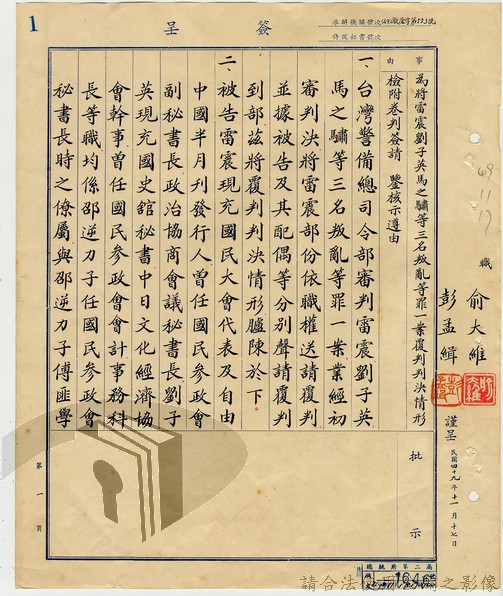 1
簽呈
承辦機關號次
収文號書祕次
事由
為將雷震劉子英馬之驌等三名叛亂等罪一案覆判判決情形
檢附卷判簽請　鑒核示遵由
職 俞大維
彭孟緝
謹呈 民國四十九年十一月十七日
49 11 17
一、台灣警備總司令部審判雷震劉子英
馬之驌等三名叛亂等罪一案業經初
審判決將雷震部份依職權送請覆判
並據被告及其配偶等分別聲請覆判
到部茲將覆判判決情形臚陳於下
二、被告雷震現充國民大會代表及自由
中國半月刊發行人曾任國民參政會
副秘書長政治協商會議秘書長劉子
英現充國史館秘書中日文化經濟協
會幹事曾任國民參政會會計事務科
長等職均係邵逆力子任國民參政會
秘書長時之僚屬與邵逆力子傅匪學
批示
第一頁
總統府第二局
請合法使用
之影像